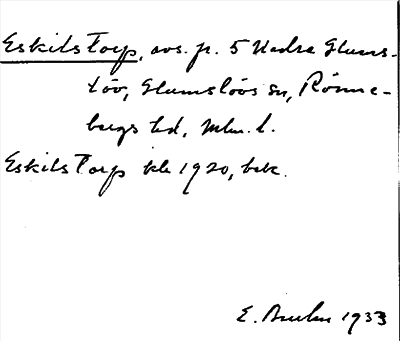 Eskilstorp, avs. fr. 5 Kadra Glums-
löv, Glumslövs sn, Rönne-
bergs hd, Mlm. l.
Eskilstorp kk 1920, bek.
E. Bruhn 1933